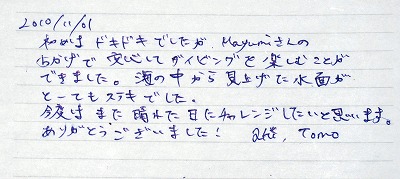 2010/11/01
初めは ドキドキでしたが、Mayumiさんの
おかげで 安心して ダイビングを 楽しむことが
できました。海の中から見上げた水面が
とーてもステキでした。
今度は また 晴れた日にチャレンジしたいと思います。
ありがとうございました! Tomo